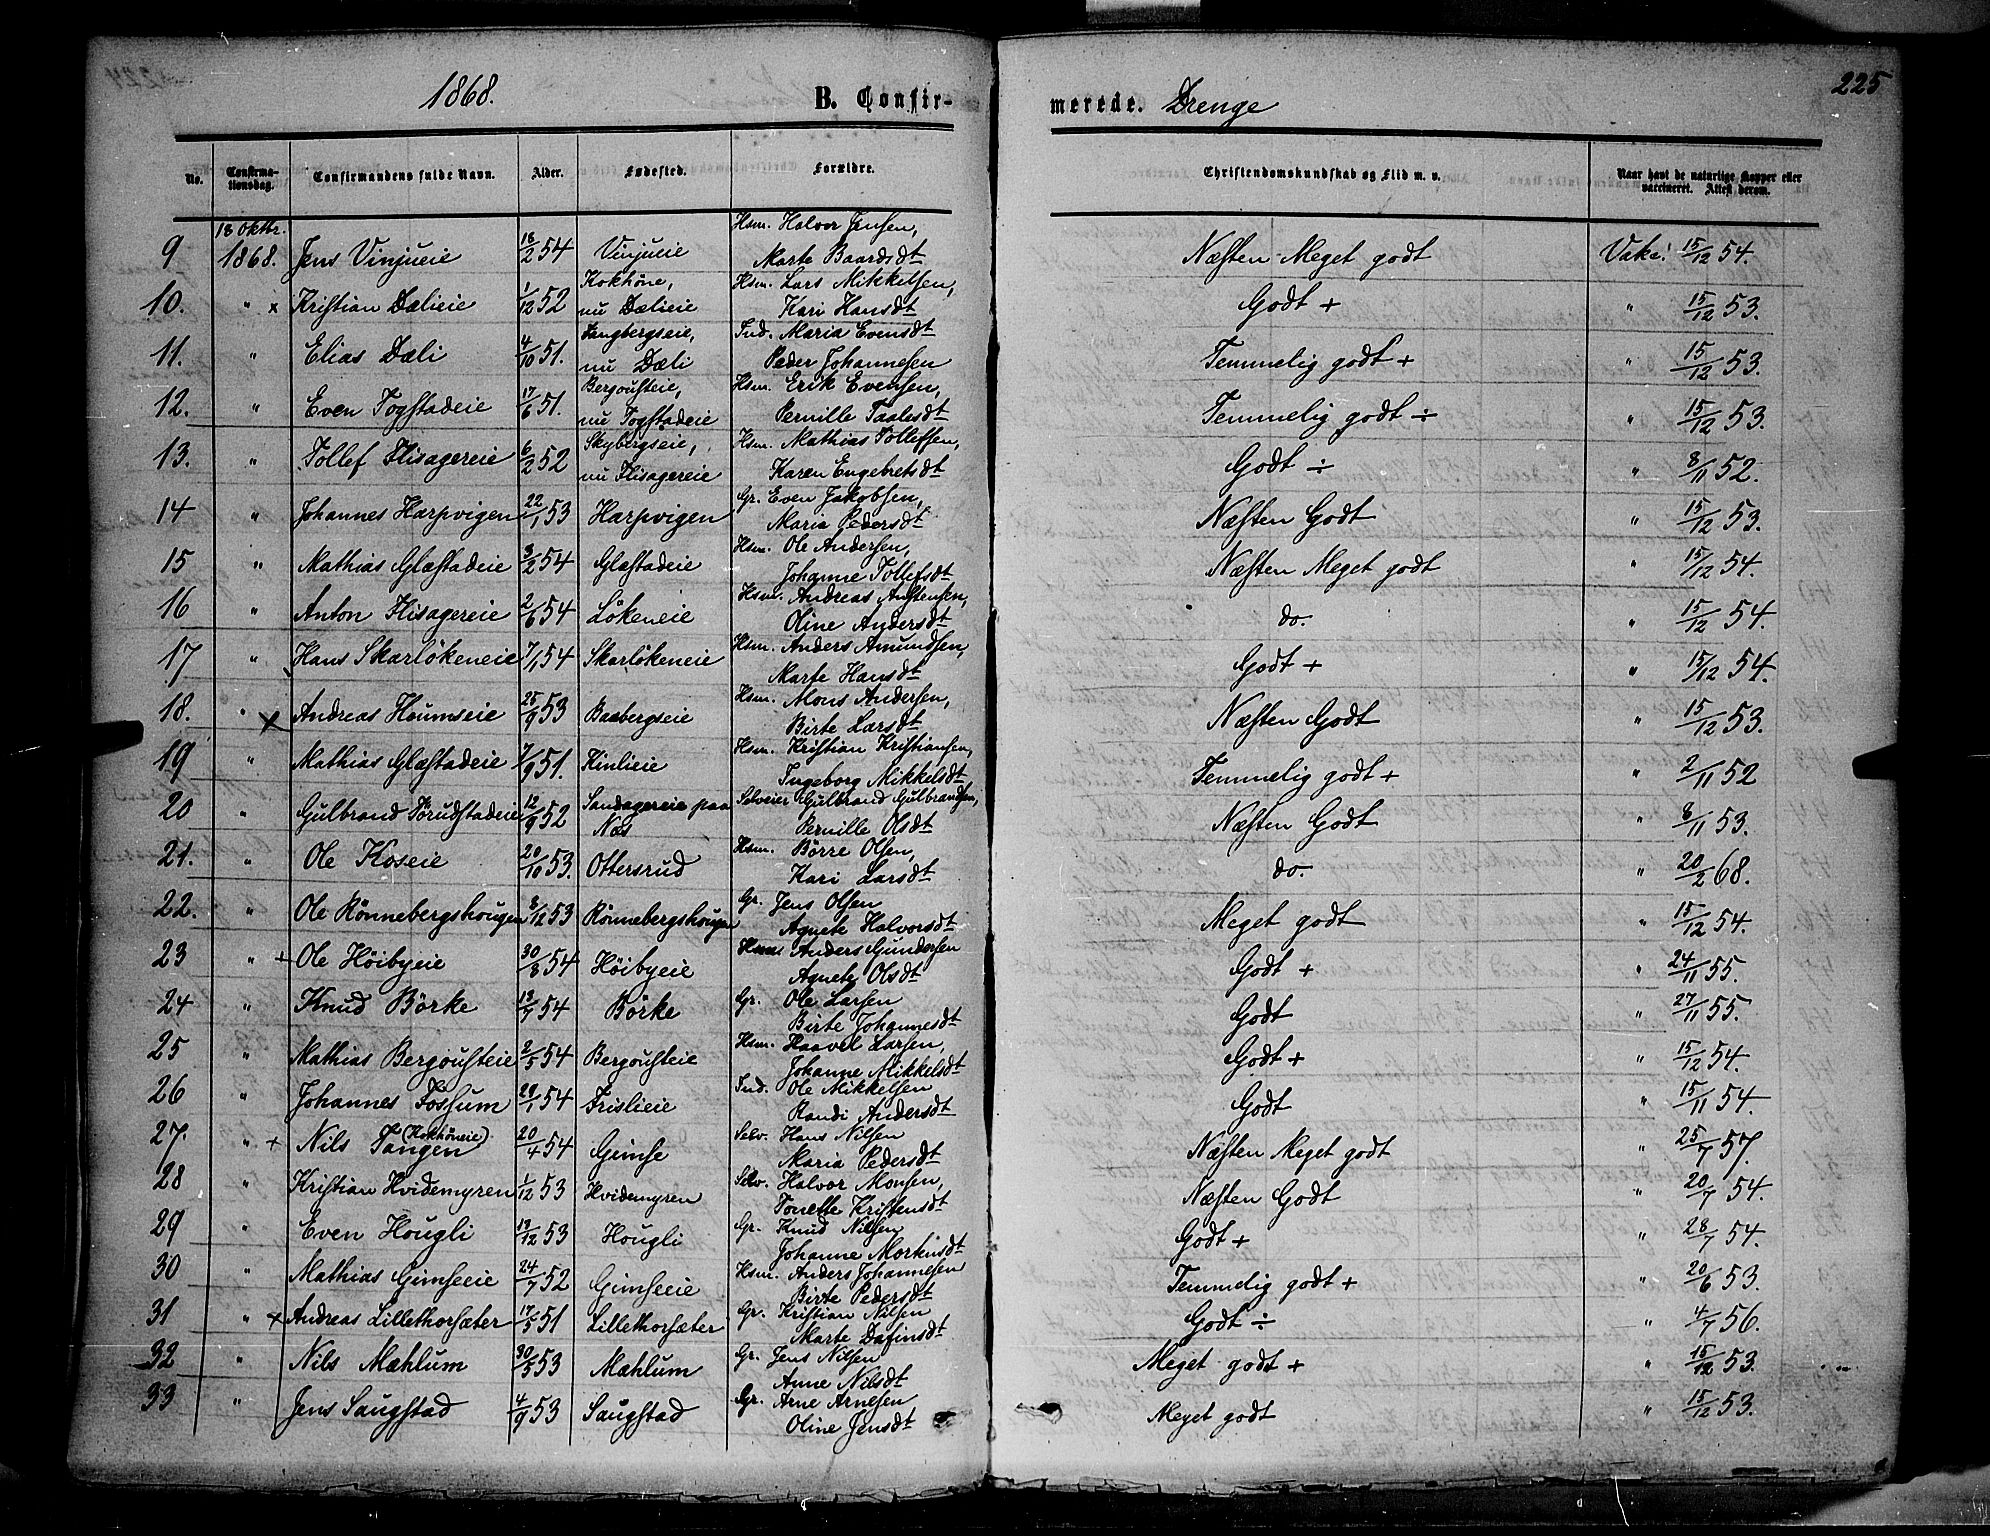 1868.
B. Confir-
merede. Drenge
225
No.
Confirma-
tionsdag.
Confirmandens fulde Navn.
Alder.
Fødested.
Forældre.
Christendomskundskab og Flid m. v.
Naar havt de naturlige Kopper eller
vaccineret. Attest derom.
9 18 Oktbr. 1868. Jens Vinjueie 18/2 54 Vinjueie Hsm. Halvor Jensen, Marte Baardsdt Næsten Meget godt Vakc: 15/12 54.
10. " x Kristian Dælieie 1/12 52 Kokhöne, nu Dælieie Hsm. Lars Mikkelsen, Kari Hansdt Godt + " 15/12 53.
11. " Elias Dæli 4/10 51. Tangbergseie, nu Dæli Ind. Maria Evensdt Peder Johannesen Temmelig godt + " 15/12 53.
12. " Even Togstadeie 17/6 51. Bergousteie, nu Togstadeie Hsm. Erik Evensen, Pernille Taalesdt Temmelig godt ÷ " 15/12 53.
13. " Tollef Flisagereie 6/2 52 Skybergseie, nu Flisagereie Hsm. Mathias Tollefsen, Karen Engebretsdt Godt ÷ " 8/11 52.
14 " Johannes Harpvigen 22/1 53 Harpvigen Gr. Even Jakobsen, Maria Pedersdt Næsten Godt " 15/12 53.
15 " Mathias Glæstadeie 3/2 54 Glæstadeie Hsm. Ole Andersen, Johanne Tollefsdt Næsten Meget godt 15/12 54.
16 " Anton Flisagereie 2/6 54 Lökeneie Hsm. Andreas Anstensen, Oline Andersdt do. " 15/12 54.
17 " Hans Skarlökeneie 7/1 54 Skarlökeneie Hsm. Anders Amundsen, Marte Hansdt Godt + " 15/12 54.
18. " x Andreas Houmseie 25/9 53 Baabergseie Hsm. Mons Andersen, Birte Larsdt Næsten Godt " 15/12 53.
19 " Mathias Glæstadeie 7/9 51. Kinlieie Hsm. Kristian Kristiansen, Ingeborg Mikkelsdt Temmelig godt + " 2/11 52
20 " Gulbrand Torudstadeie 12/9 52 Sandagereie paa Næs Selveier Gulbrand Gulbrandsen, Pernille Olsdt Næsten Godt " 8/11 53.
21. " Ole Koseie 20/10 53. Ottersrud Hsm. Börre Olsen, Kari Larsdt do. " 20/2 68.
22. " Ole Rönnebergshougen 8/12 53 Rönnebergshougen Gr. Jens Olsen Agnete Halvorsdt Meget godt " 15/12 54.
23 " + Ole Höibyeie 30/8 54 Höibyeie Hsm. Anders Gundersen Agnete Olsdt Godt + " 24/11 55.
24 " Knud Börke 13/7 54 Börke Gr. Ole Larsen Birte Johannesdt Godt " 27/11 55.
25 " Mathias Bergousteie 2/5 54 Bergousteie Hsm. Haavel Larsen, Johanne Mikkelsdt Godt + " 15/12 54.
26 " Johannes Fossum 20/1 54 Frislieie Ind. Ole Mikkelsen Randi Andersdt Godt " 15/11 54.
27. " + Nils Tangen (Kokhöneie) 20/4 54 Gimse Selv. Hans Nilsen Maria Pedersdt Næsten Meget godt " 25/7 57.
28 " Kristian Hvidemyren 1/12 53 Hvidemyren Selv. Halvor Monsen, Tonette Kristensdt Næsten Godt " 20/7 54.
29 " Even Hougli 13/12 53 Hougli Gr. Knud Nilsen Johanne Morkusdt Godt + " 28/7 54.
30 " Mathias Gimseeie 24/7 52 Gimseeie Hsm. Anders Johannesen Birte Pedersdt Temmelig godt + " 20/6 53.
31 " x Andreas Lillethorsæter 17/5 51 Lillethorsæter Gr. Kristian Nilsen Marte Dafinsdt Godt ÷ " 4/7 56.
32 " Nils Mæhlum 30/5 53 Mæhlum Gr. Jens Nilsen Anne Nilsdt Meget godt + " 15/12 53.
33 " Jens Saugstad 4/9 53 Saugstad Gr. Arne Arnesen Oline Jensdt Meget godt " 15/12 53.